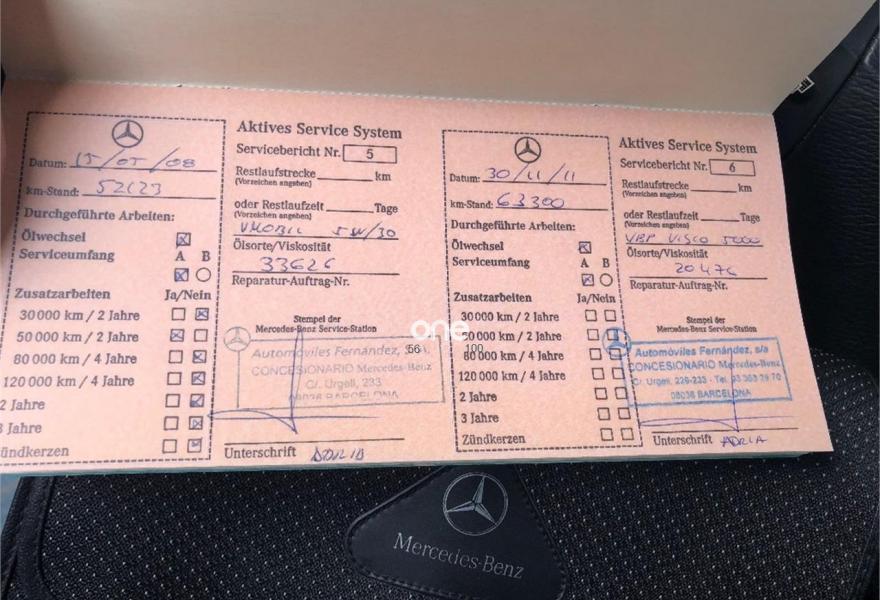 Aktives Service System
Servicebericht Nr. 5
Datum: 15/05/08
Restlaufstrecke km
(Vorzeichen angeben)
km-Stand: 52123
oder Restlaufzeit Tage
(Vorzeichen angeben)
Durchgeführte Arbeiten:
5W/30
Ölsorte/Viskosität
Ölwechsel
Serviceumfang A B
33626
Reparatur-Auftrag-Nr.
Zusatzarbeiten Ja/Nein
30 000 km / 2 Jahre
50 000 km / 2 Jahre
80 000 km / 4 Jahre
120 000 km / 4 Jahre
2 Jahre
3 Jahre
Zündkerzen
Stempel der
Mercedes-Benz Service-Station
Automóviles Fernández,
CONCESIONARIO Mercedes-Benz
C/. Urgell, 233
08036 BARCELONA
Unterschrift
Aktives Service System
Servicebericht Nr. 6
Datum: 30/11/11
Restlaufstrecke km
(Vorzeichen angeben)
km-Stand: 63300
oder Restlaufzeit Tage
(Vorzeichen angeben)
Durchgeführte Arbeiten:
VISCO 5000
Ölsorte/Viskosität
Ölwechsel
Serviceumfang A B
20476
Reparatur-Auftrag-Nr.
Zusatzarbeiten Ja/Nein
30 000 km / 2 Jahre
50 000 km / 2 Jahre
80 000 km / 4 Jahre
120 000 km / 4 Jahre
2 Jahre
3 Jahre
Zündkerzen
Stempel der
Mercedes-Benz Service-Station
Automóviles Fernández, s/a
CONCESIONARIO Mercedes-Benz
C/. Urgell, 226-233 - Tel. 93
08036 BARCELONA
Unterschrift ADRIA
one
56 100
Mercedes-Benz